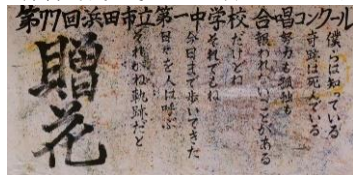 第77回浜田市立第一中学校 合唱コンクール
僕らは知っている
奇跡は死んでいる
努力も孤独も
報われないことがある
だけどね
それでもね
今日まで歩いてきた
日々を人は呼ぶ
それがね軌跡だと
贈花